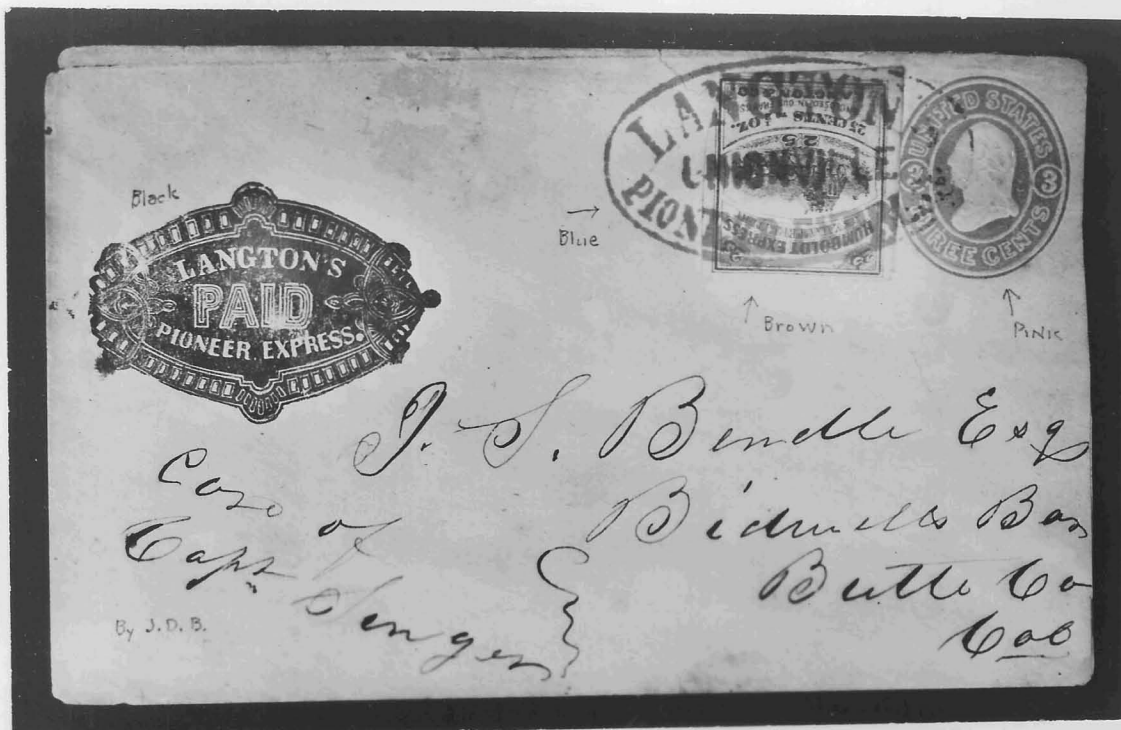 Black
LANGTON'S
PAID
PIONEER EXPRESS.
LANGTON'S
UNIONVILLE
PIONEER
Blue
HUMBOLDT EXPRESS
25
25 CENTS ½ OZ.
LANGTON & CO
Brown
UNITED STATES
3 3
THREE CENTS
PINK
J. S. Bendle Esq
Bidwells Bar
Butte Co
Cal
Care of
Capt
By J.D.B.